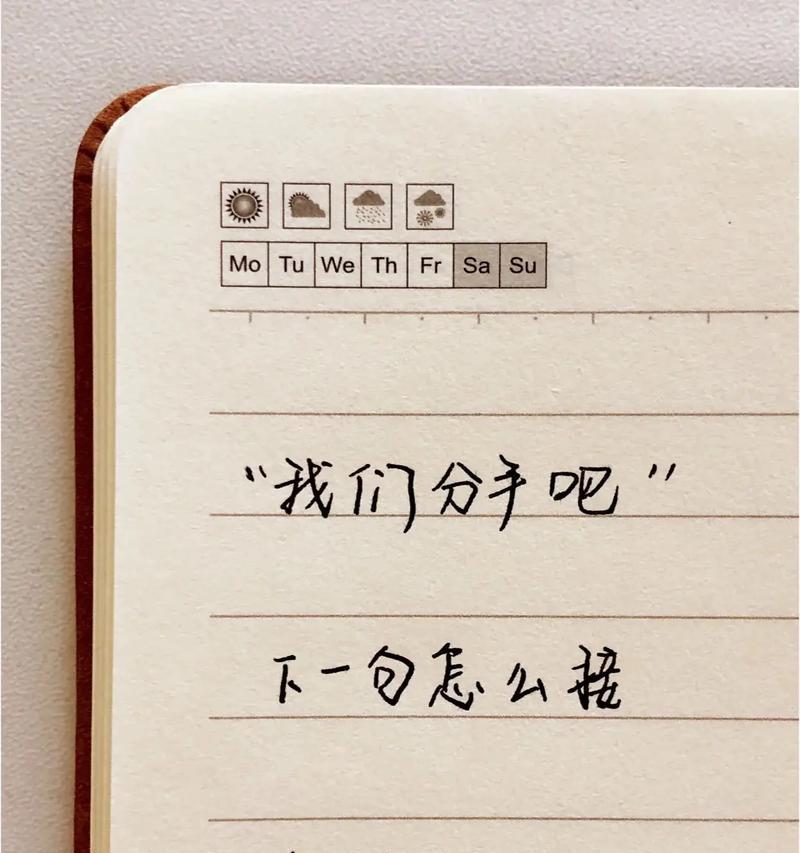 Mo Tu We Th Fr Sa Su
“我们分手吧”
下一句怎么接